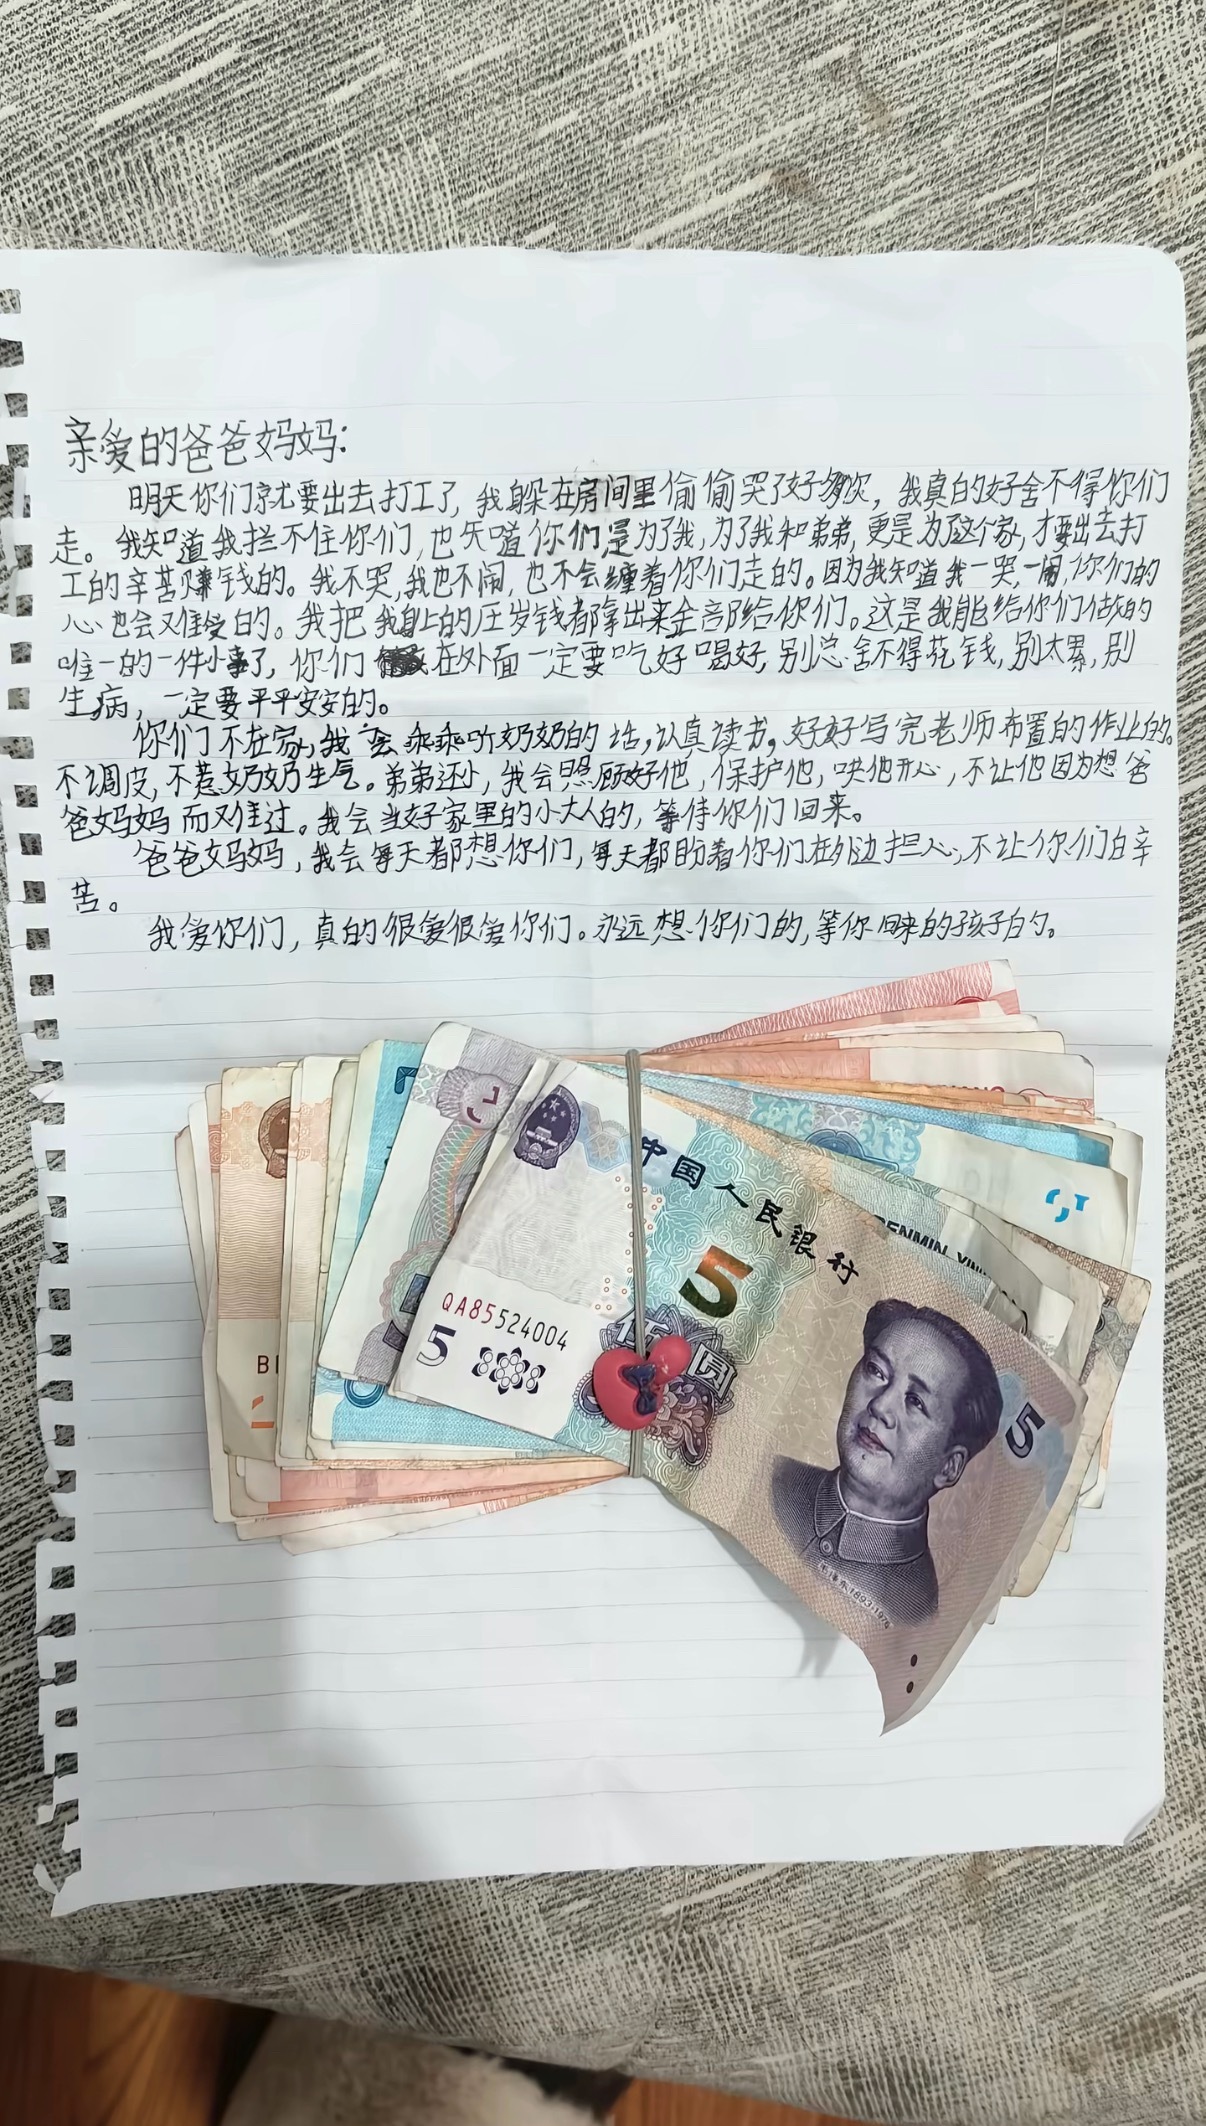 亲爱的爸爸妈妈:
明天你们就要出去打工了,我躲在房间里偷偷哭了好多次,我真的好舍不得你们
走。我知道我拦不住你们,也知道你们是为了我,为了我和弟弟,更是为了这个家,才要出去打
工的辛苦赚钱的。我不哭,我也不闹,也不会缠着你们走的。因为我知道我一哭,一闹,你们的
心也会又难受的。我把我身上的压岁钱都拿出来全部给你们。这是我能给你们做的
唯一的一件小事了,你们在外面一定要吃好喝好,别总舍不得花钱,别太累,别
生病,一定要平平安安的。
你们不在家,我会乖乖听奶奶的话,认真读书,好好写完老师布置的作业的。
不调皮,不惹奶奶生气。弟弟还小,我会照顾好他,保护他,哄他开心,不让他因为想爸
爸妈妈而又难过。我会当好家里的小大人的,等待你们回来。
爸爸妈妈,我会每天都想你们,每天都盼着你们在外边担心,不让你们白辛
苦。
我爱你们,真的很爱很爱你们。永远想你们的,等你回来的孩子的。
中国人民银行
RENMIN YIN
5
QA85524004
伍圆
5
5
毛泽东1893-1976